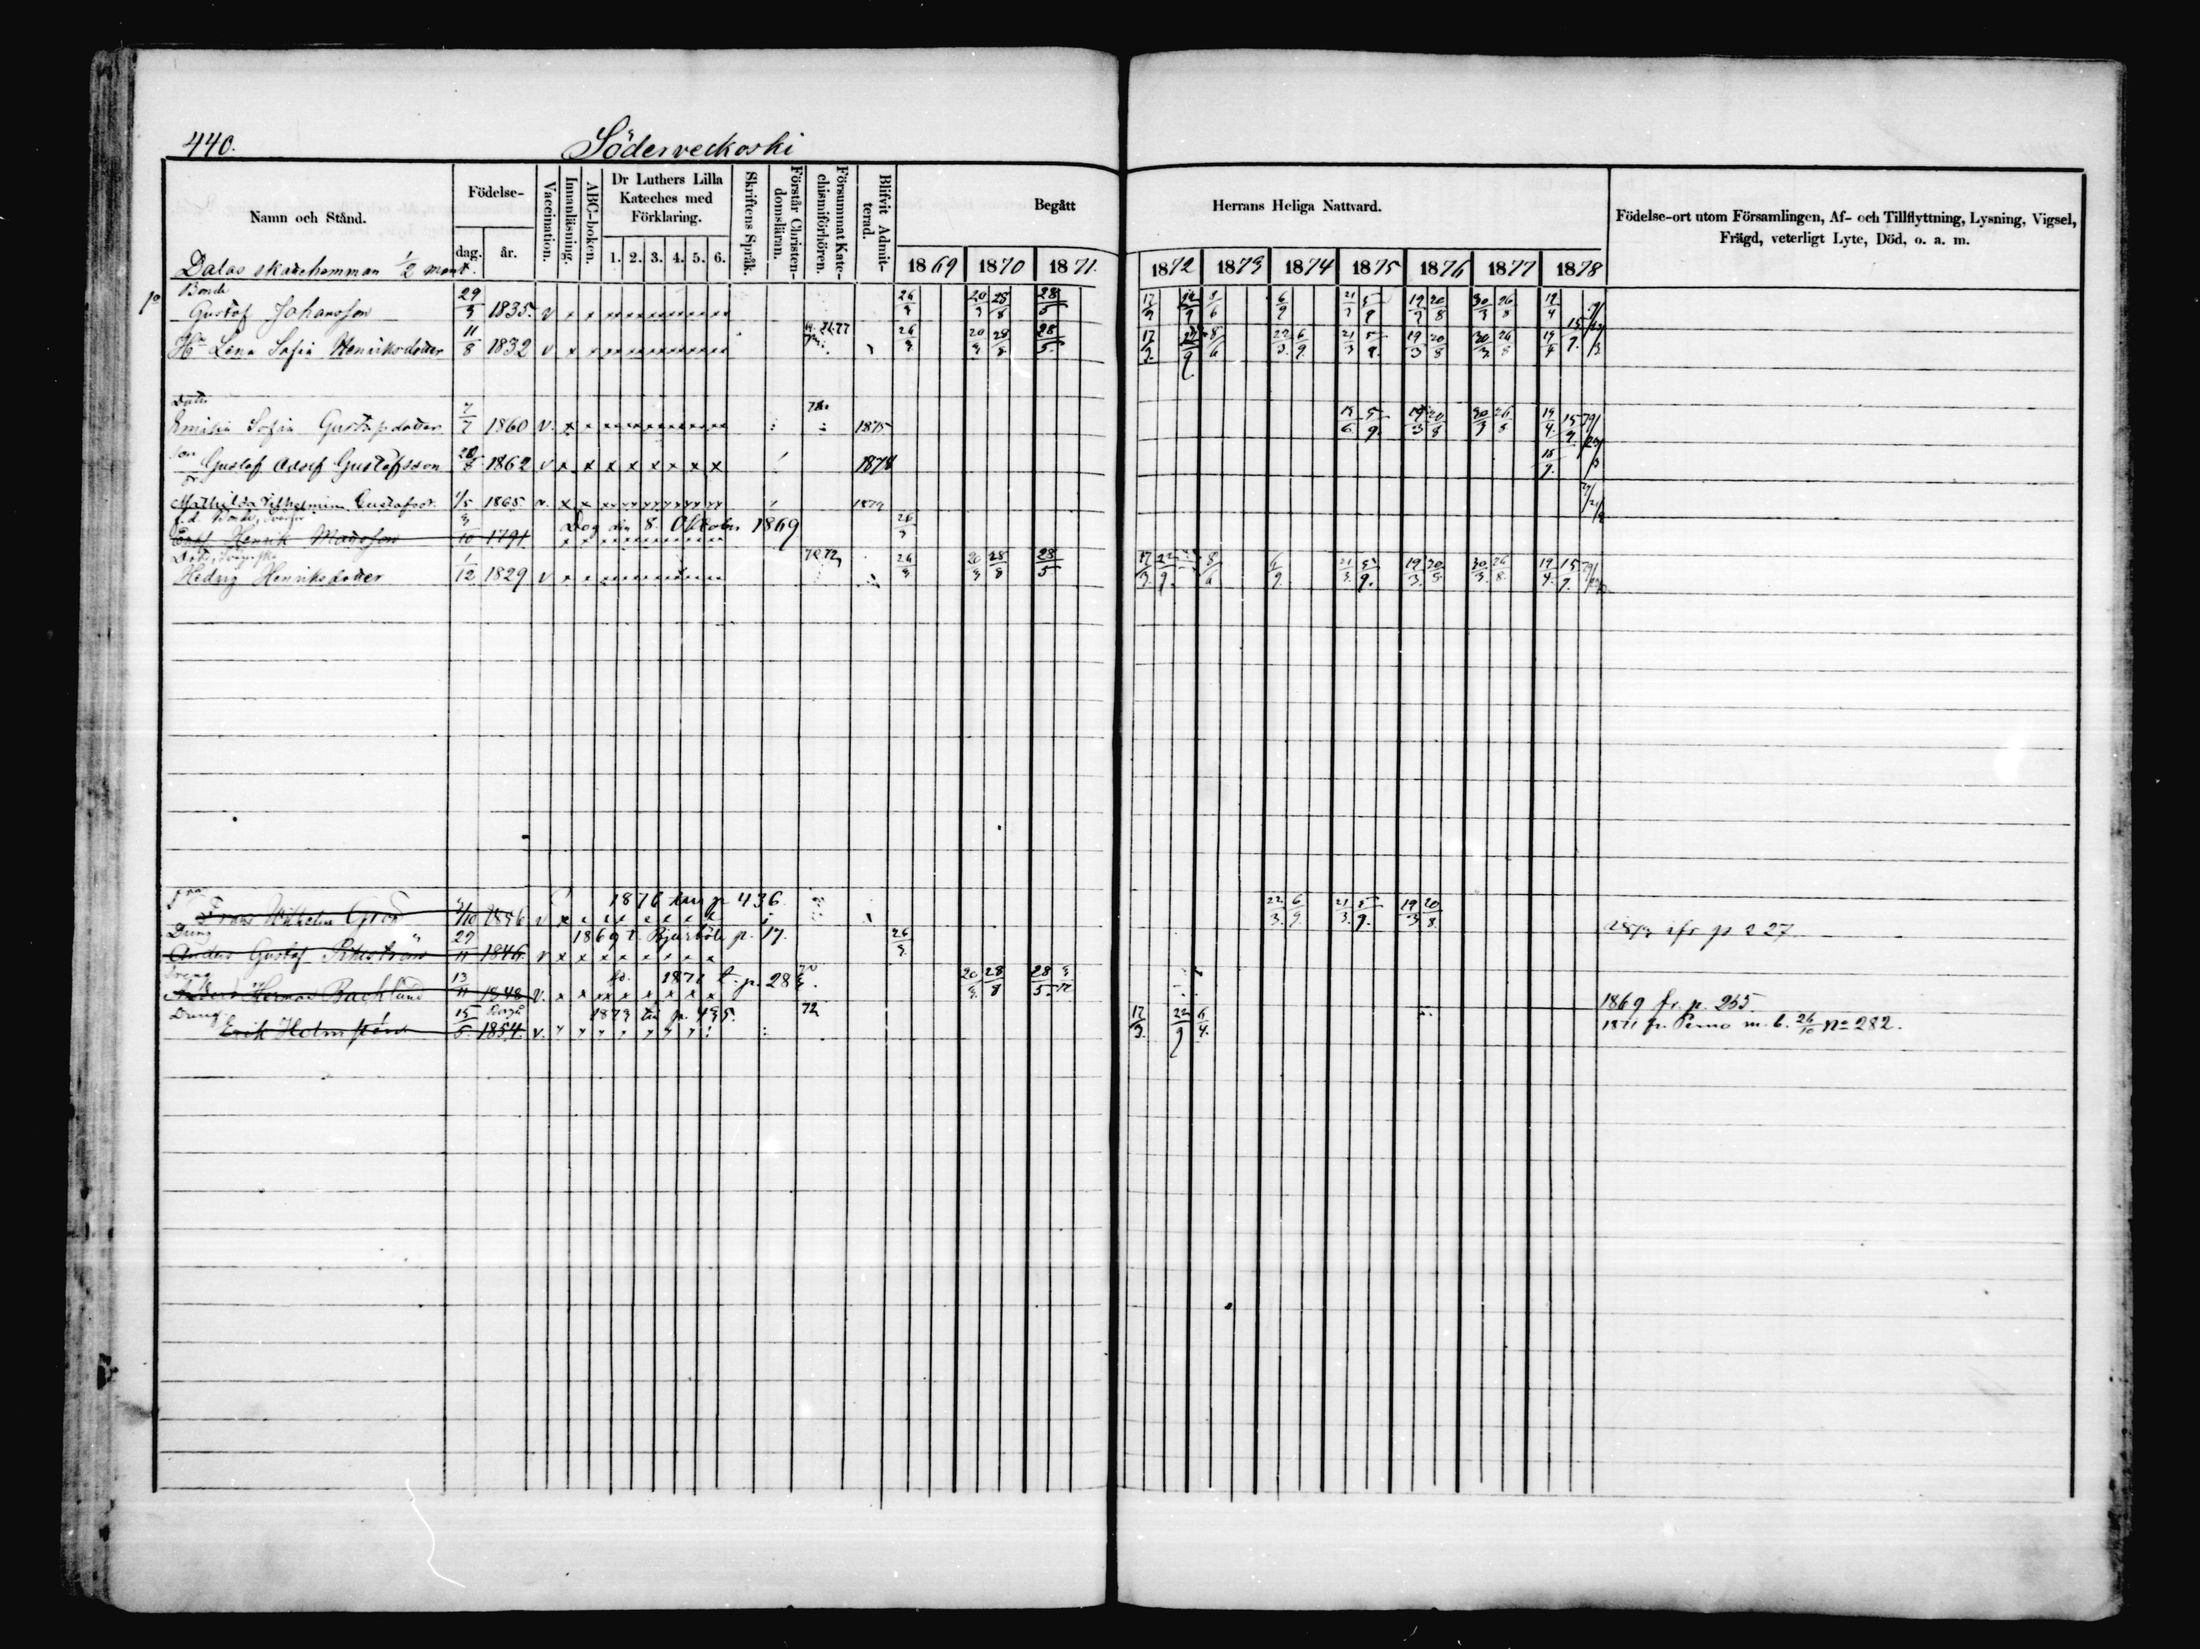 440. Söderveckoski
Namn och Stånd.
Födelse-
dag. år.
Vaccination.
Innanläsning.
ABC-boken.
Dr Luthers Lilla Kateches med Förklaring.
1. 2. 3. 4. 5. 6.
Skriftens Språk.
Förstår Christendomsläran.
Försummat Katechismiförhören.
Blifvit Admitterad.
Begått Herrans Heliga Nattvard.
1869 1870 1871. 1872 1873 1874 1875 1876 1877 1878
Födelse-ort utom Församlingen, Af- och Tillflyttning, Lysning, Vigsel,
Frägd, veterligt Lyte, Död, o. a. m.
Dalas skattehemman 1/2 mant.
Bonde
Gustaf Johansson 29/3 1835. v 26/3 20/3 28/8 28/5 17/3 8/6 6/9 21/3 5/9 19/3 20/8 30/3 26/8 19/4
Hu Lena Sofia Henriksdotter 11/8 1832 v 26/3 20/3 28/8 28/5. 17/3. 22/9 8/6 22/3. 6/9. 21/3 5/9. 19/3 20/8 30/3. 26/8 19/4 15/9.
Dotter
Emilia Sofia Gustafsdotter 7/7 1860 v. 1875 5/9. 19/3 20/8 30/3 26/8 19/4. 15/9.
Son
Gustaf Adolf Gustafsson 28/8 1862 v 1878 15/9.
Mathilda Vilhelmina Gustafsdr 1/5 1865. v. 1879
f.d. Bonde,
Henrik Mattsson 3/10 1791 Dog den 8. Oktober 1869 26/3
Hedvig Henriksdotter 1/12 1829 v 70 72 26/3 20/3 28/8 28/5 17/3. 22/9. 8/6 6/9 21/3. 5/9. 19/3. 20/8 30/3. 26/8. 19/4. 15/9.
Frans Wilhelm 1856 v 1876 p 436 22/3. 6/9. 21/3. 5/9. 19/3 20/8. ifr p 227
Dräng
Anders Gustaf 29/11 1846. v 1869 t. Bjurböle p. 17. 26/3
Dräng
Anders Herman Backlund 13/11 1848 v. 1871 t. p. 28 20/3. 28/8 28/5. 1869 fr. p. 255.
Dräng
Erik Holmstén 15/5. 1854. v. 1873 p. 435. 72 17/3. 22/9 6/4. 1871 fr. Perno m. b. 26/10 No 282.